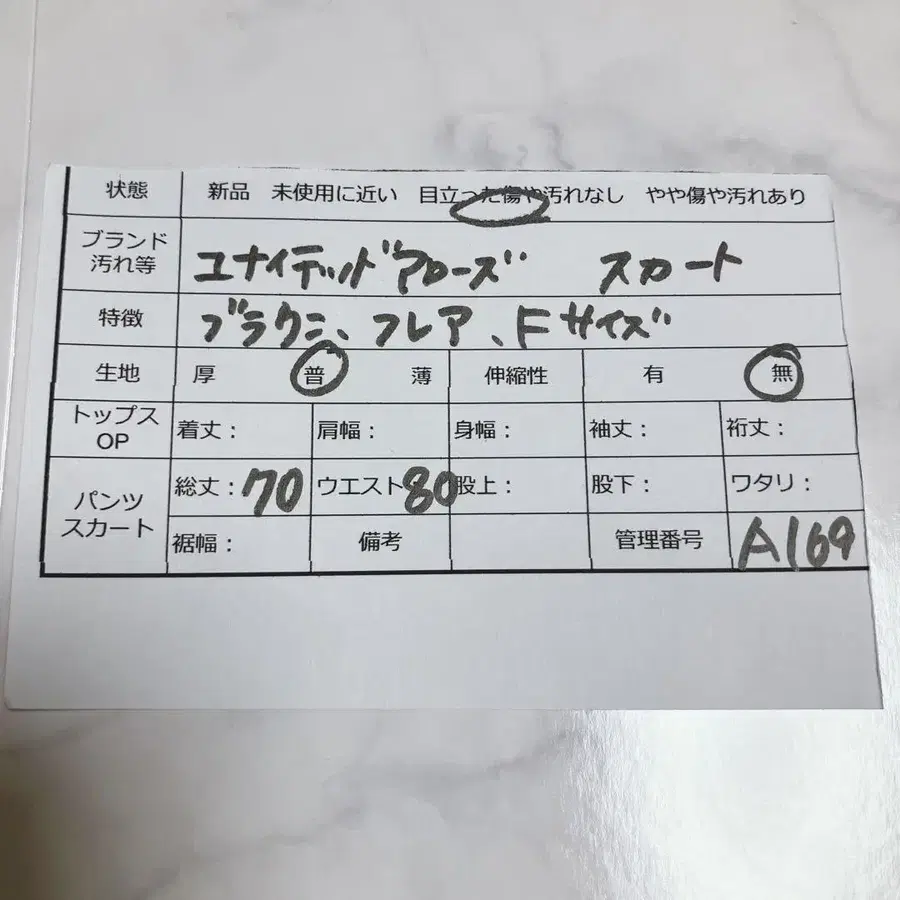 状態 新品 未使用に近い 目立った傷や汚れなし やや傷や汚れあり
ブランド
汚れ等 ユナイテッドアローズ スカート
特徴 ブラウン、フレア、Fサイズ
生地 厚 普 薄 伸縮性 有 無
トップス
OP 着丈： 肩幅： 身幅： 袖丈： 裄丈：
パンツ
スカート 総丈：70 ウエスト80 股上： 股下： ワタリ：
裾幅： 備考 管理番号 A169